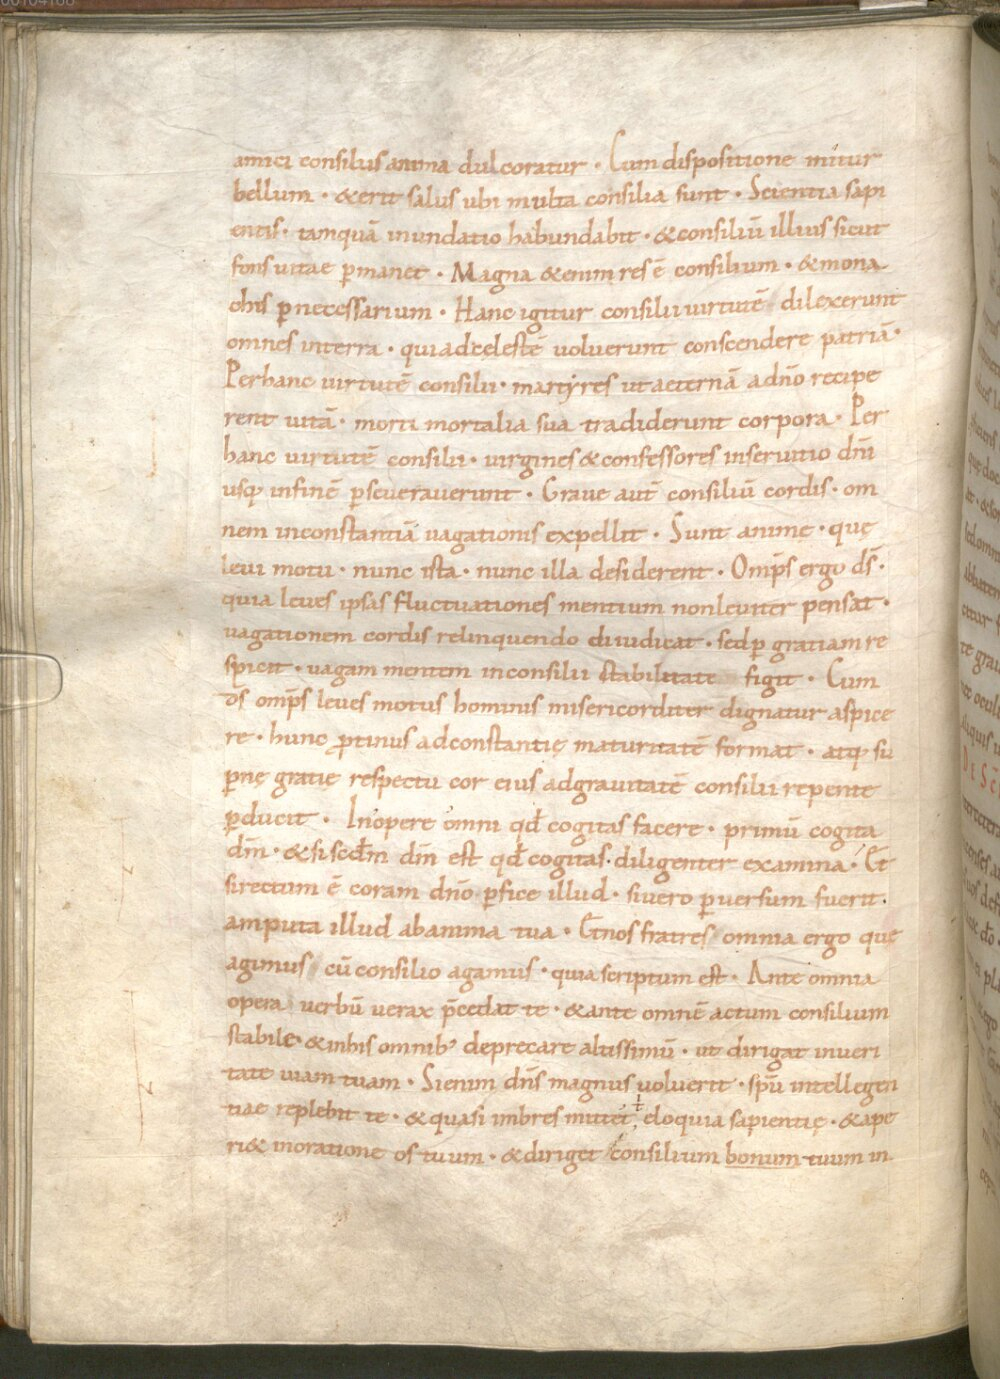 amici consiliis anima dulcoratur · Cum dispositione initur
bellum · & erit salus ubi multa consilia sunt · Scientia sapi
entis · tamquā inundatio habundabit · & consiliū illius sicut
fons uitae p̄manet · Magna &enim res ē consilium · & mona
chis p̄necessarium · Hanc igitur consilii uirtutē dilexerunt
omnes interra · quia adcelestē uoluerunt conscendere patriā ·
Per hanc uirtutē consilii · martyres ut aeternā a dn̄o recipe
rent uitā · morti mortalia sua tradiderunt corpora · Per
hanc uirtutē consilii · uirgines & confessores inseruitio dn̄i
usq; infinē p̄seuerauerunt · Graue aut̄ consiliū cordis · om
nem inconstantiā uagationis expellit · Sunt anime · quę
leui motu · nunc ista · nunc illa desiderent · Omp̄s ergo ds̄ ·
quia leues ipsas fluctuationes mentium non leuiter pensat ·
uagationem cordis relinquendo diiudicat · sed p̄ gratiam re
spicit · uagam mentem inconsilii stabilitate figit · Cum
ds̄ omp̄s leues motus hominis misericorditer dignatur aspice
re · hunc p̄tinus adconstantię maturitatē format · atq; su
p̄nę gratię respectu cor eius adgrauitatē consilii repente
p̄ducit · In opere omni qd̄ cogitas facere · primū cogita
dm̄ · & si scd̄m dm̄ est qd̄ cogitas · diligenter examina · Et
si rectum ē coram dn̄o p̄fice illud · si uero p̄uersum fuerit ·
amputa illud ab anima tua · Et nos fratres omnia ergo quę
agimus cū consilio agamus · quia scriptum est · Ante omnia
opera uerbū uerax p̄cedat te · & ante omnē actum consilium
stabile · & in his omnib; deprecare altissimū · ut dirigat inueri
tate uiam tuam · Si enim dn̄s magnus uoluerit · spū intellegen
tiae replebit te · & quasi imbres mittet eloquia sapientię · & ape
ri& inoratione os tuum · & diriget consilium bonum tuum in